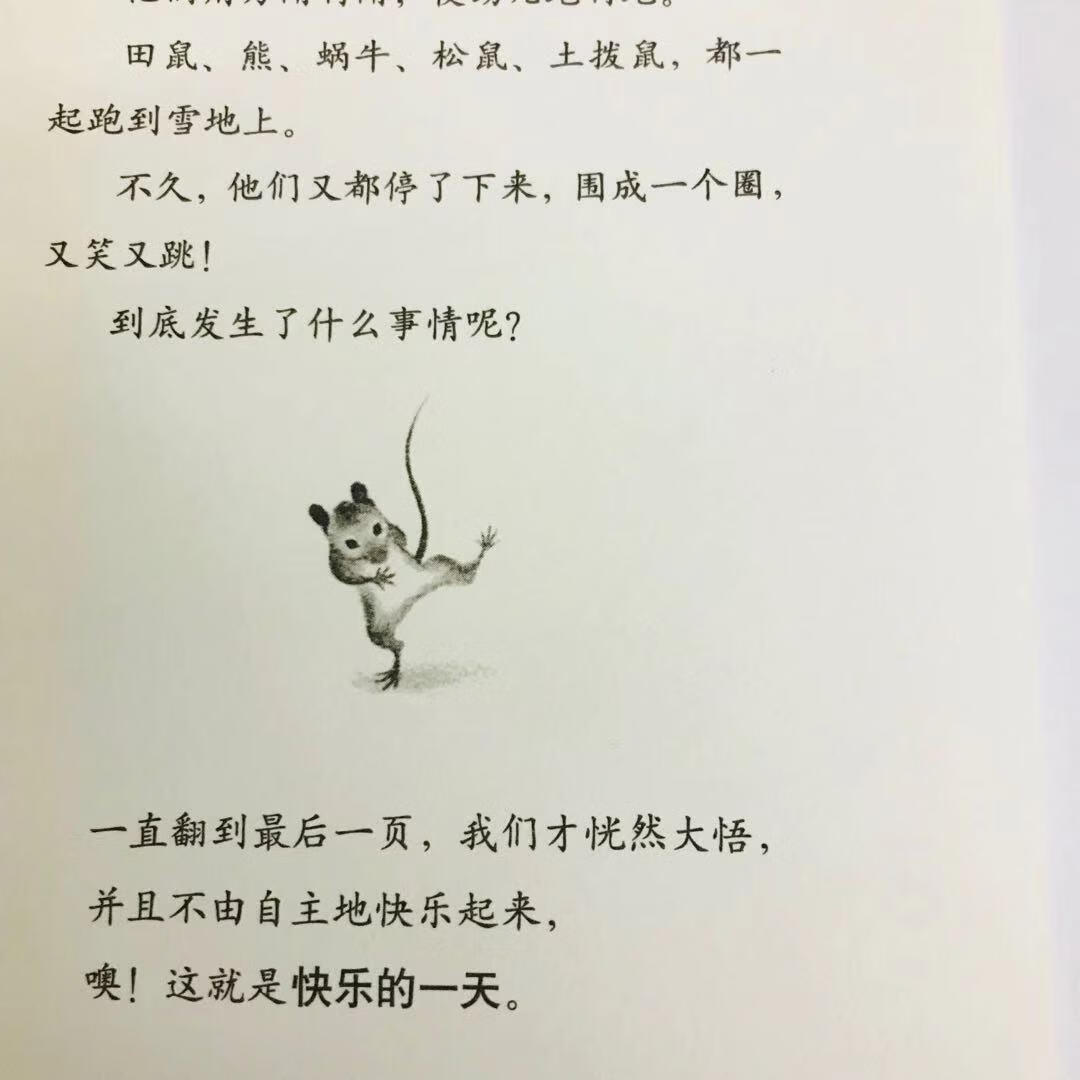 田鼠、熊、蜗牛、松鼠、土拨鼠，都一
起跑到雪地上。
不久，他们又都停了下来，围成一个圈，
又笑又跳！
到底发生了什么事情呢？
一直翻到最后一页，我们才恍然大悟，
并且不由自主地快乐起来，
噢！这就是快乐的一天。